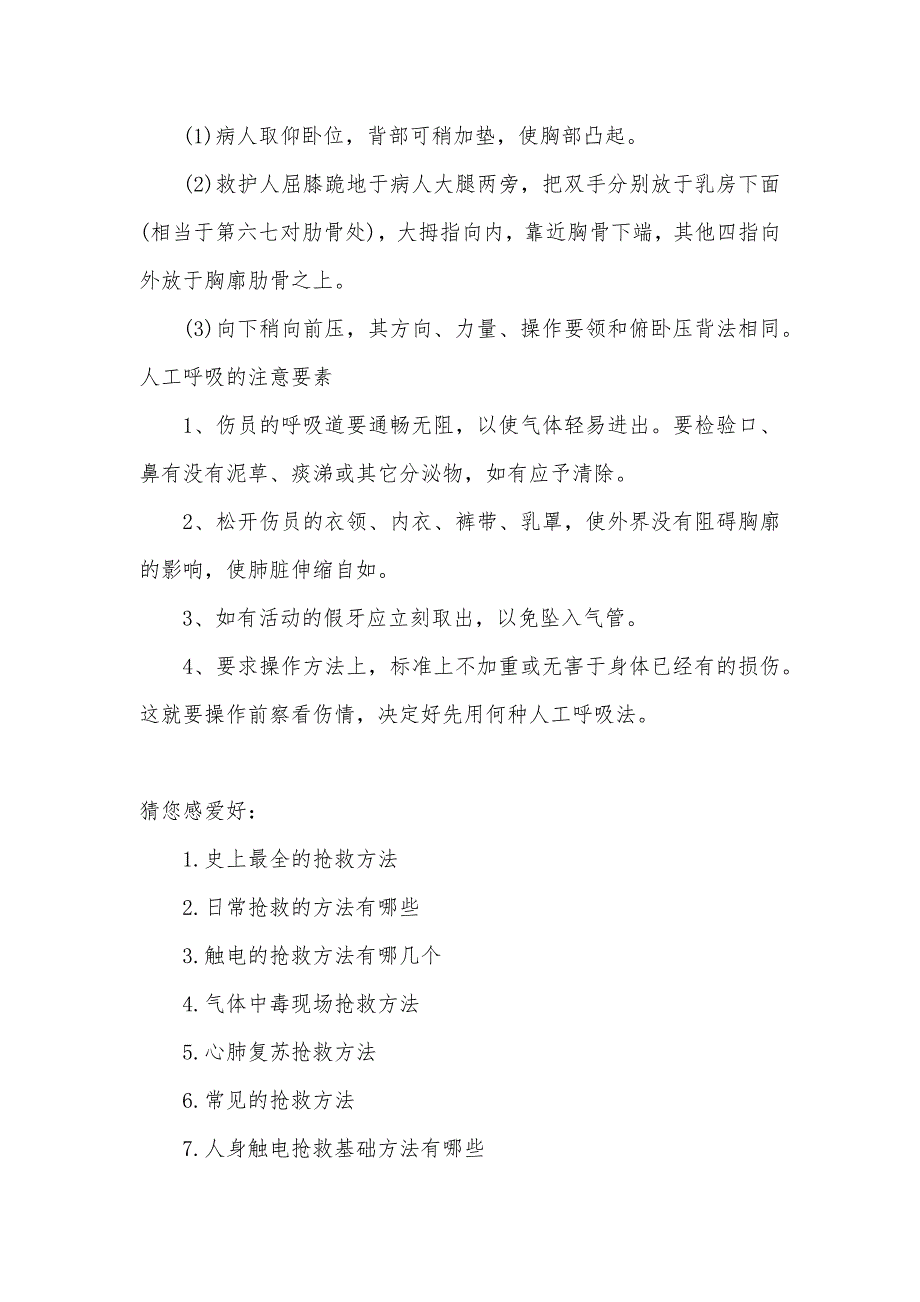 (1)病人取仰卧位，背部可稍加垫，使胸部凸起。
(2)救护人屈膝跪地于病人大腿两旁，把双手分别放于乳房下面
(相当于第六七对肋骨处)，大拇指向内，靠近胸骨下端，其他四指向
外放于胸廓肋骨之上。
(3)向下稍向前压，其方向、力量、操作要领和俯卧压背法相同。
人工呼吸的注意要素
1、伤员的呼吸道要通畅无阻，以使气体轻易进出。要检验口、
鼻有没有泥草、痰涕或其它分泌物，如有应予清除。
2、松开伤员的衣领、内衣、裤带、乳罩，使外界没有阻碍胸廓
的影响，使肺脏伸缩自如。
3、如有活动的假牙应立刻取出，以免坠入气管。
4、要求操作方法上，标准上不加重或无害于身体已经有的损伤。
这就要操作前察看伤情，决定好先用何种人工呼吸法。
猜您感爱好：
1.史上最全的抢救方法
2.日常抢救的方法有哪些
3.触电的抢救方法有哪几个
4.气体中毒现场抢救方法
5.心肺复苏抢救方法
6.常见的抢救方法
7.人身触电抢救基础方法有哪些